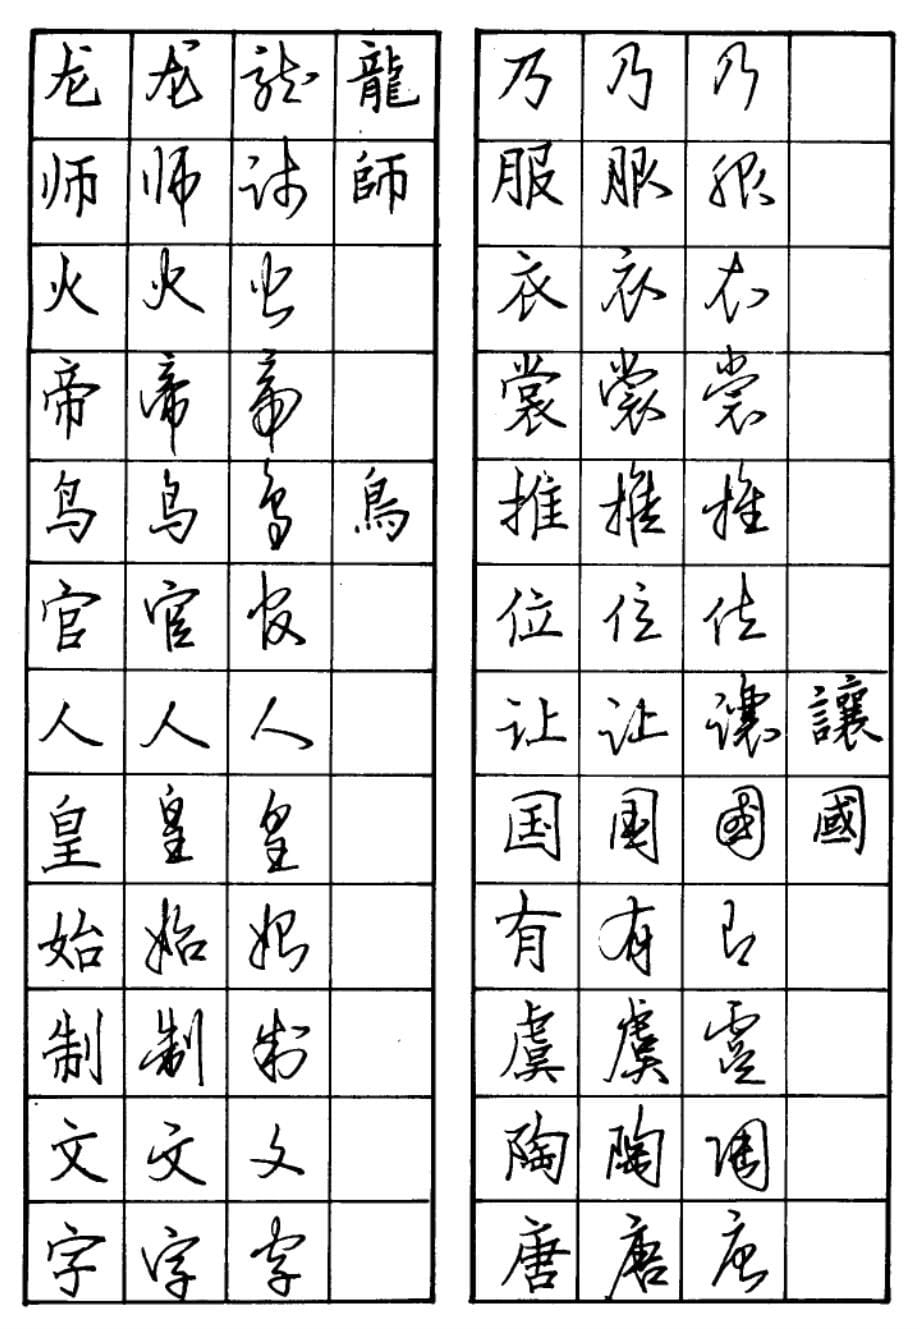 龙 龙 龙 龍
师 师 师 師
火 火 火
帝 帝 帝
鸟 鸟 鸟 鳥
官 官 官
人 人 人
皇 皇 皇
始 始 始
制 制 制
文 文 文
字 字 字
乃 乃 乃
服 服 服
衣 衣 衣
裳 裳 裳
推 推 推
位 位 位
让 让 讓 讓
国 国 國 國
有 有 有
虞 虞 虞
陶 陶 陶
唐 唐 唐